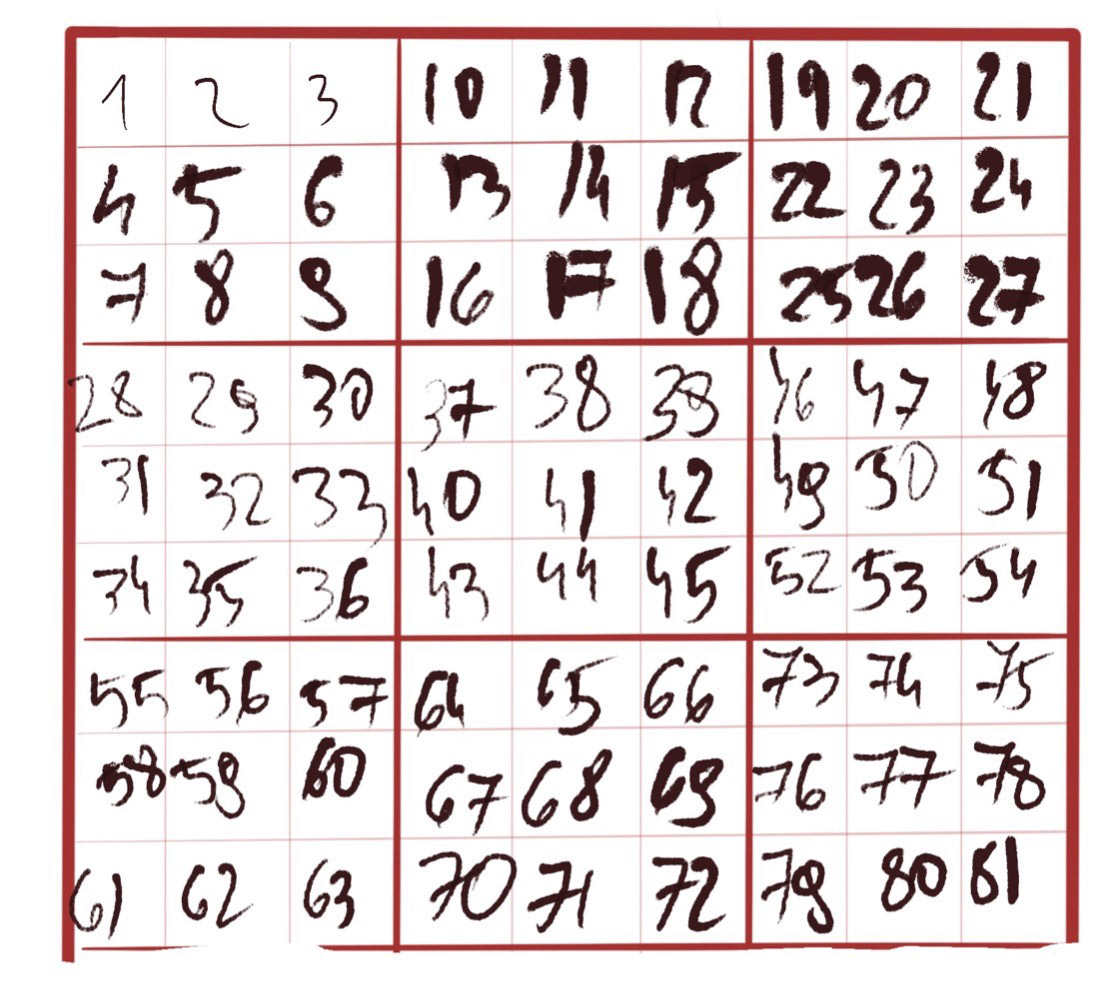 1 2 3 10 11 12 19 20 21
4 5 6 13 14 15 22 23 24
7 8 9 16 17 18 25 26 27
28 29 30 37 38 39 46 47 48
31 32 33 40 41 42 49 50 51
34 35 36 43 44 45 52 53 54
55 56 57 64 65 66 73 74 75
58 59 60 67 68 69 76 77 78
61 62 63 70 71 72 79 80 81